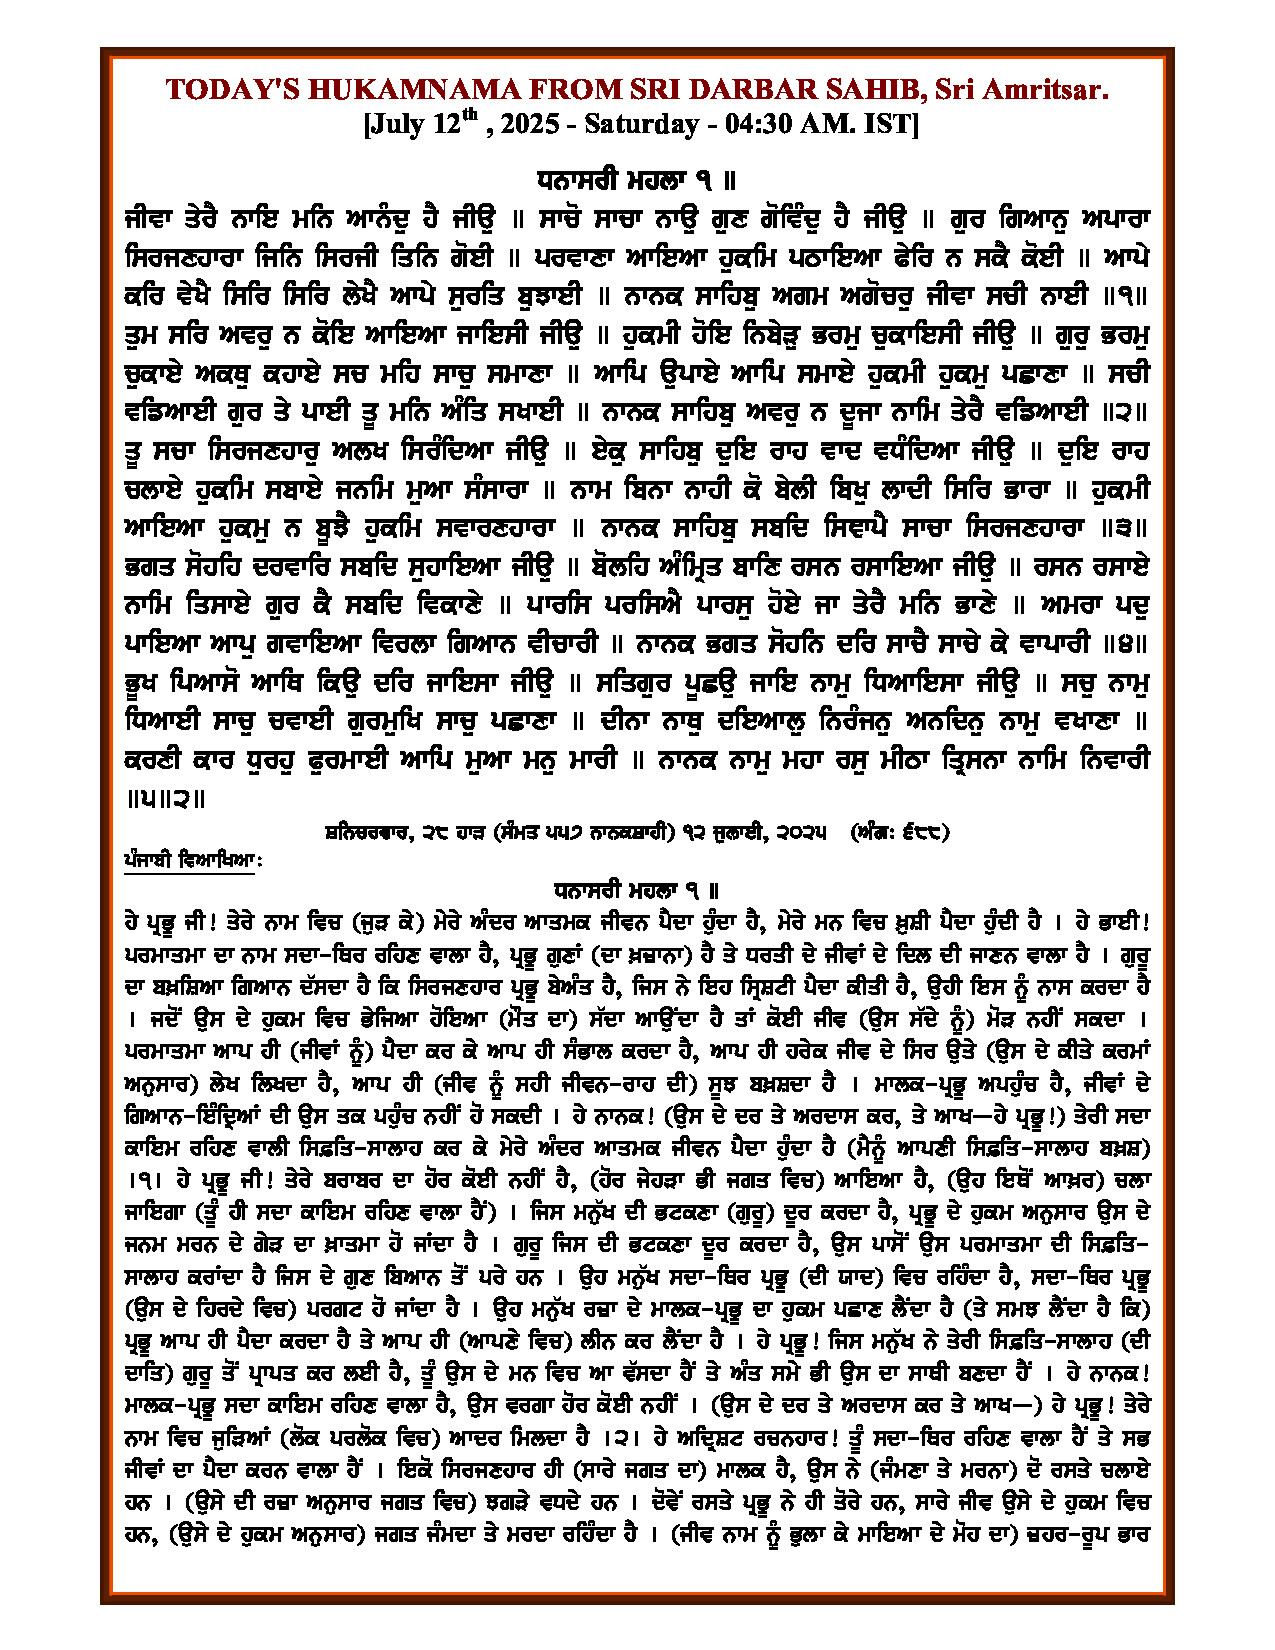 TODAY'S HUKAMNAMA FROM SRI DARBAR SAHIB, Sri Amritsar.
[July 12th , 2025 - Saturday - 04:30 AM. IST]
ਧਨਾਸਰੀ ਮਹਲਾ ੧ ॥
ਜੀਵਾ ਤੇਰੈ ਨਾਇ ਮਨਿ ਆਨੰਦੁ ਹੈ ਜੀਉ ॥ ਸਾਚੋ ਸਾਚਾ ਨਾਉ ਗੁਣ ਗੋਵਿੰਦੁ ਹੈ ਜੀਉ ॥ ਗੁਰ ਗਿਆਨੁ ਅਪਾਰਾ
ਸਿਰਜਣਹਾਰਾ ਜਿਨਿ ਸਿਰਜੀ ਤਿਨਿ ਗੋਈ ॥ ਪਰਵਾਣਾ ਆਇਆ ਹੁਕਮਿ ਪਠਾਇਆ ਫੇਰਿ ਨ ਸਕੈ ਕੋਈ ॥ ਆਪੇ
ਕਰਿ ਵੇਖੈ ਸਿਰਿ ਸਿਰਿ ਲੇਖੈ ਆਪੇ ਸੁਰਤਿ ਬੁਝਾਈ ॥ ਨਾਨਕ ਸਾਹਿਬੁ ਅਗਮ ਅਗੋਚਰੁ ਜੀਵਾ ਸਚੀ ਨਾਈ ॥੧॥
ਤੁਮ ਸਰਿ ਅਵਰੁ ਨ ਕੋਇ ਆਇਆ ਜਾਇਸੀ ਜੀਉ ॥ ਹੁਕਮੀ ਹੋਇ ਨਿਬੇੜੁ ਭਰਮੁ ਚੁਕਾਇਸੀ ਜੀਉ ॥ ਗੁਰੁ ਭਰਮੁ
ਚੁਕਾਏ ਅਕਥੁ ਕਹਾਏ ਸਚ ਮਹਿ ਸਾਚੁ ਸਮਾਣਾ ॥ ਆਪਿ ਉਪਾਏ ਆਪਿ ਸਮਾਏ ਹੁਕਮੀ ਹੁਕਮੁ ਪਛਾਣਾ ॥ ਸਚੀ
ਵਡਿਆਈ ਗੁਰ ਤੇ ਪਾਈ ਤੂ ਮਨਿ ਅੰਤਿ ਸਖਾਈ ॥ ਨਾਨਕ ਸਾਹਿਬੁ ਅਵਰੁ ਨ ਦੂਜਾ ਨਾਮਿ ਤੇਰੈ ਵਡਿਆਈ ॥੨॥
ਤੂ ਸਚਾ ਸਿਰਜਣਹਾਰੁ ਅਲਖ ਸਿਰੰਦਿਆ ਜੀਉ ॥ ਏਕੁ ਸਾਹਿਬੁ ਦੁਇ ਰਾਹ ਵਾਦ ਵਧੰਦਿਆ ਜੀਉ ॥ ਦੁਇ ਰਾਹ
ਚਲਾਏ ਹੁਕਮਿ ਸਬਾਏ ਜਨਮਿ ਮੁਆ ਸੰਸਾਰਾ ॥ ਨਾਮ ਬਿਨਾ ਨਾਹੀ ਕੋ ਬੇਲੀ ਬਿਖੁ ਲਾਦੀ ਸਿਰਿ ਭਾਰਾ ॥ ਹੁਕਮੀ
ਆਇਆ ਹੁਕਮੁ ਨ ਬੂਝੈ ਹੁਕਮਿ ਸਵਾਰਣਹਾਰਾ ॥ ਨਾਨਕ ਸਾਹਿਬੁ ਸਬਦਿ ਸਿਞਾਪੈ ਸਾਚਾ ਸਿਰਜਣਹਾਰਾ ॥੩॥
ਭਗਤ ਸੋਹਹਿ ਦਰਵਾਰਿ ਸਬਦਿ ਸੁਹਾਇਆ ਜੀਉ ॥ ਬੋਲਹਿ ਅੰਮ੍ਰਿਤ ਬਾਣਿ ਰਸਨ ਰਸਾਇਆ ਜੀਉ ॥ ਰਸਨ ਰਸਾਏ
ਨਾਮਿ ਤਿਸਾਏ ਗੁਰ ਕੈ ਸਬਦਿ ਵਿਕਾਣੇ ॥ ਪਾਰਸਿ ਪਰਸਿਐ ਪਾਰਸੁ ਹੋਏ ਜਾ ਤੇਰੈ ਮਨਿ ਭਾਣੇ ॥ ਅਮਰਾ ਪਦੁ
ਪਾਇਆ ਆਪੁ ਗਵਾਇਆ ਵਿਰਲਾ ਗਿਆਨ ਵੀਚਾਰੀ ॥ ਨਾਨਕ ਭਗਤ ਸੋਹਨਿ ਦਰਿ ਸਾਚੈ ਸਾਚੇ ਕੇ ਵਾਪਾਰੀ ॥੪॥
ਭੂਖ ਪਿਆਸੋ ਆਥਿ ਕਿਉ ਦਰਿ ਜਾਇਸਾ ਜੀਉ ॥ ਸਤਿਗੁਰ ਪੂਛਉ ਜਾਇ ਨਾਮੁ ਧਿਆਇਸਾ ਜੀਉ ॥ ਸਚੁ ਨਾਮੁ
ਧਿਆਈ ਸਾਚੁ ਚਵਾਈ ਗੁਰਮੁਖਿ ਸਾਚੁ ਪਛਾਣਾ ॥ ਦੀਨਾ ਨਾਥੁ ਦਇਆਲੁ ਨਿਰੰਜਨੁ ਅਨਦਿਨੁ ਨਾਮੁ ਵਖਾਣਾ ॥
ਕਰਣੀ ਕਾਰ ਧੁਰਹੁ ਫੁਰਮਾਈ ਆਪਿ ਮੁਆ ਮਨੁ ਮਾਰੀ ॥ ਨਾਨਕ ਨਾਮੁ ਮਹਾ ਰਸੁ ਮੀਠਾ ਤ੍ਰਿਸਨਾ ਨਾਮਿ ਨਿਵਾਰੀ
॥੫॥੨॥
ਸ਼ਨਿਚਰਵਾਰ, ੨੮ ਹਾੜ (ਸੰਮਤ ੫੫੭ ਨਾਨਕਸ਼ਾਹੀ) ੧੨ ਜੁਲਾਈ, ੨੦੨੫ (ਅੰਗ: ੬੮੮)
ਪੰਜਾਬੀ ਵਿਆਖਿਆ:
ਧਨਾਸਰੀ ਮਹਲਾ ੧ ॥
ਹੇ ਪ੍ਰਭੂ ਜੀ! ਤੇਰੇ ਨਾਮ ਵਿਚ (ਜੁੜ ਕੇ) ਮੇਰੇ ਅੰਦਰ ਆਤਮਕ ਜੀਵਨ ਪੈਦਾ ਹੁੰਦਾ ਹੈ, ਮੇਰੇ ਮਨ ਵਿਚ ਖ਼ੁਸ਼ੀ ਪੈਦਾ ਹੁੰਦੀ ਹੈ । ਹੇ ਭਾਈ!
ਪਰਮਾਤਮਾ ਦਾ ਨਾਮ ਸਦਾ-ਥਿਰ ਰਹਿਣ ਵਾਲਾ ਹੈ, ਪ੍ਰਭੂ ਗੁਣਾਂ (ਦਾ ਖ਼ਜ਼ਾਨਾ) ਹੈ ਤੇ ਧਰਤੀ ਦੇ ਜੀਵਾਂ ਦੇ ਦਿਲ ਦੀ ਜਾਣਨ ਵਾਲਾ ਹੈ । ਗੁਰੂ
ਦਾ ਬਖ਼ਸ਼ਿਆ ਗਿਆਨ ਦੱਸਦਾ ਹੈ ਕਿ ਸਿਰਜਣਹਾਰ ਪ੍ਰਭੂ ਬੇਅੰਤ ਹੈ, ਜਿਸ ਨੇ ਇਹ ਸ੍ਰਿਸ਼ਟੀ ਪੈਦਾ ਕੀਤੀ ਹੈ, ਉਹੀ ਇਸ ਨੂੰ ਨਾਸ ਕਰਦਾ ਹੈ
। ਜਦੋਂ ਉਸ ਦੇ ਹੁਕਮ ਵਿਚ ਭੇਜਿਆ ਹੋਇਆ (ਮੌਤ ਦਾ) ਸੱਦਾ ਆਉਂਦਾ ਹੈ ਤਾਂ ਕੋਈ ਜੀਵ (ਉਸ ਸੱਦੇ ਨੂੰ) ਮੋੜ ਨਹੀਂ ਸਕਦਾ ।
ਪਰਮਾਤਮਾ ਆਪ ਹੀ (ਜੀਵਾਂ ਨੂੰ) ਪੈਦਾ ਕਰ ਕੇ ਆਪ ਹੀ ਸੰਭਾਲ ਕਰਦਾ ਹੈ, ਆਪ ਹੀ ਹਰੇਕ ਜੀਵ ਦੇ ਸਿਰ ਉਤੇ (ਉਸ ਦੇ ਕੀਤੇ ਕਰਮਾਂ
ਅਨੁਸਾਰ) ਲੇਖ ਲਿਖਦਾ ਹੈ, ਆਪ ਹੀ (ਜੀਵ ਨੂੰ ਸਹੀ ਜੀਵਨ-ਰਾਹ ਦੀ) ਸੂਝ ਬਖ਼ਸ਼ਦਾ ਹੈ । ਮਾਲਕ-ਪ੍ਰਭੂ ਅਪਹੁੰਚ ਹੈ, ਜੀਵਾਂ ਦੇ
ਗਿਆਨ-ਇੰਦ੍ਰਿਆਂ ਦੀ ਉਸ ਤਕ ਪਹੁੰਚ ਨਹੀਂ ਹੋ ਸਕਦੀ । ਹੇ ਨਾਨਕ! (ਉਸ ਦੇ ਦਰ ਤੇ ਅਰਦਾਸ ਕਰ, ਤੇ ਆਖ—ਹੇ ਪ੍ਰਭੂ!) ਤੇਰੀ ਸਦਾ
ਕਾਇਮ ਰਹਿਣ ਵਾਲੀ ਸਿਫ਼ਤਿ-ਸਾਲਾਹ ਕਰ ਕੇ ਮੇਰੇ ਅੰਦਰ ਆਤਮਕ ਜੀਵਨ ਪੈਦਾ ਹੁੰਦਾ ਹੈ (ਮੈਨੂੰ ਆਪਣੀ ਸਿਫ਼ਤਿ-ਸਾਲਾਹ ਬਖ਼ਸ਼)
।੧। ਹੇ ਪ੍ਰਭੂ ਜੀ! ਤੇਰੇ ਬਰਾਬਰ ਦਾ ਹੋਰ ਕੋਈ ਨਹੀਂ ਹੈ, (ਹੋਰ ਜੇਹੜਾ ਭੀ ਜਗਤ ਵਿਚ) ਆਇਆ ਹੈ, (ਉਹ ਇਥੋਂ ਆਖ਼ਰ) ਚਲਾ
ਜਾਇਗਾ (ਤੂੰ ਹੀ ਸਦਾ ਕਾਇਮ ਰਹਿਣ ਵਾਲਾ ਹੈਂ) । ਜਿਸ ਮਨੁੱਖ ਦੀ ਭਟਕਣਾ (ਗੁਰੂ) ਦੂਰ ਕਰਦਾ ਹੈ, ਪ੍ਰਭੂ ਦੇ ਹੁਕਮ ਅਨੁਸਾਰ ਉਸ ਦੇ
ਜਨਮ ਮਰਨ ਦੇ ਗੇੜ ਦਾ ਖ਼ਾਤਮਾ ਹੋ ਜਾਂਦਾ ਹੈ । ਗੁਰੂ ਜਿਸ ਦੀ ਭਟਕਣਾ ਦੂਰ ਕਰਦਾ ਹੈ, ਉਸ ਪਾਸੋਂ ਉਸ ਪਰਮਾਤਮਾ ਦੀ ਸਿਫ਼ਤਿ-
ਸਾਲਾਹ ਕਰਾਂਦਾ ਹੈ ਜਿਸ ਦੇ ਗੁਣ ਬਿਆਨ ਤੋਂ ਪਰੇ ਹਨ । ਉਹ ਮਨੁੱਖ ਸਦਾ-ਥਿਰ ਪ੍ਰਭੂ (ਦੀ ਯਾਦ) ਵਿਚ ਰਹਿੰਦਾ ਹੈ, ਸਦਾ-ਥਿਰ ਪ੍ਰਭੂ
(ਉਸ ਦੇ ਹਿਰਦੇ ਵਿਚ) ਪਰਗਟ ਹੋ ਜਾਂਦਾ ਹੈ । ਉਹ ਮਨੁੱਖ ਰਜ਼ਾ ਦੇ ਮਾਲਕ-ਪ੍ਰਭੂ ਦਾ ਹੁਕਮ ਪਛਾਣ ਲੈਂਦਾ ਹੈ (ਤੇ ਸਮਝ ਲੈਂਦਾ ਹੈ ਕਿ)
ਪ੍ਰਭੂ ਆਪ ਹੀ ਪੈਦਾ ਕਰਦਾ ਹੈ ਤੇ ਆਪ ਹੀ (ਆਪਣੇ ਵਿਚ) ਲੀਨ ਕਰ ਲੈਂਦਾ ਹੈ । ਹੇ ਪ੍ਰਭੂ! ਜਿਸ ਮਨੁੱਖ ਨੇ ਤੇਰੀ ਸਿਫ਼ਤਿ-ਸਾਲਾਹ (ਦੀ
ਦਾਤਿ) ਗੁਰੂ ਤੋਂ ਪ੍ਰਾਪਤ ਕਰ ਲਈ ਹੈ, ਤੂੰ ਉਸ ਦੇ ਮਨ ਵਿਚ ਆ ਵੱਸਦਾ ਹੈਂ ਤੇ ਅੰਤ ਸਮੇ ਭੀ ਉਸ ਦਾ ਸਾਥੀ ਬਣਦਾ ਹੈਂ । ਹੇ ਨਾਨਕ!
ਮਾਲਕ-ਪ੍ਰਭੂ ਸਦਾ ਕਾਇਮ ਰਹਿਣ ਵਾਲਾ ਹੈ, ਉਸ ਵਰਗਾ ਹੋਰ ਕੋਈ ਨਹੀਂ । (ਉਸ ਦੇ ਦਰ ਤੇ ਅਰਦਾਸ ਕਰ ਤੇ ਆਖ—) ਹੇ ਪ੍ਰਭੂ! ਤੇਰੇ
ਨਾਮ ਵਿਚ ਜੁੜਿਆਂ (ਲੋਕ ਪਰਲੋਕ ਵਿਚ) ਆਦਰ ਮਿਲਦਾ ਹੈ ।੨। ਹੇ ਅਦ੍ਰਿਸ਼ਟ ਰਚਨਹਾਰ! ਤੂੰ ਸਦਾ-ਥਿਰ ਰਹਿਣ ਵਾਲਾ ਹੈਂ ਤੇ ਸਭ
ਜੀਵਾਂ ਦਾ ਪੈਦਾ ਕਰਨ ਵਾਲਾ ਹੈਂ । ਇਕੋ ਸਿਰਜਣਹਾਰ ਹੀ (ਸਾਰੇ ਜਗਤ ਦਾ) ਮਾਲਕ ਹੈ, ਉਸ ਨੇ (ਜੰਮਣਾ ਤੇ ਮਰਨਾ) ਦੋ ਰਸਤੇ ਚਲਾਏ
ਹਨ । (ਉਸੇ ਦੀ ਰਜ਼ਾ ਅਨੁਸਾਰ ਜਗਤ ਵਿਚ) ਝਗੜੇ ਵਧਦੇ ਹਨ । ਦੋਵੇਂ ਰਸਤੇ ਪ੍ਰਭੂ ਨੇ ਹੀ ਤੋਰੇ ਹਨ, ਸਾਰੇ ਜੀਵ ਉਸੇ ਦੇ ਹੁਕਮ ਵਿਚ
ਹਨ, (ਉਸੇ ਦੇ ਹੁਕਮ ਅਨੁਸਾਰ) ਜਗਤ ਜੰਮਦਾ ਤੇ ਮਰਦਾ ਰਹਿੰਦਾ ਹੈ । (ਜੀਵ ਨਾਮ ਨੂੰ ਭੁਲਾ ਕੇ ਮਾਇਆ ਦੇ ਮੋਹ ਦਾ) ਜ਼ਹਰ-ਰੂਪ ਭਾਰ